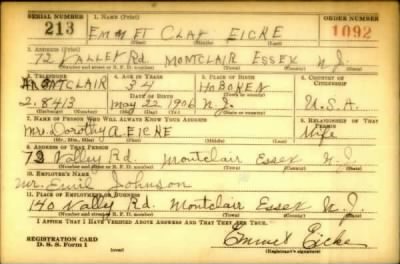 SERIAL NUMBER 1. NAME (Print) ORDER NUMBER
213 EMMET CLAY EICKE 1092
2. ADDRESS (Print)
72 VALLEY Rd. MONTCLAIR ESSEX N.J.
(Number and street or R. F. D. number) (Town) (County) (State)
3. TELEPHONE 4. AGE IN YEARS 5. PLACE OF BIRTH 6. COUNTRY OF CITIZENSHIP
MONTCLAIR 34 HOBOKEN
DATE OF BIRTH
2-8413 May 22 1906 N.J. U.S.A.
7. NAME OF PERSON WHO WILL ALWAYS KNOW YOUR ADDRESS 8. RELATIONSHIP OF THAT PERSON
Mrs. Dorothy A. EICKE Wife
9. ADDRESS OF THAT PERSON
72 Vally Rd. Montclair Essex N.J.
(Number and street or R. F. D. number) (Town) (County) (State)
10. EMPLOYER'S NAME
Mr. Emil Johnson
11. PLACE OF EMPLOYMENT OR BUSINESS
140 Vally Rd. Montclair Essex N.J.
(Number and street or R. F. D. number) (Town) (County) (State)
I AFFIRM THAT I HAVE VERIFIED ABOVE ANSWERS AND THAT THEY ARE TRUE.
REGISTRATION CARD
D. S. S. Form 1 (over) Emmet Eicke
(Registrant's signature)